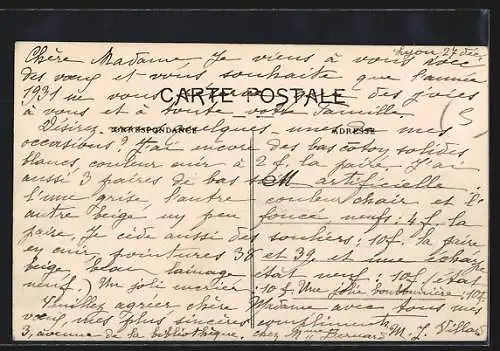 Lyon 27 déc
Chère Madame, Je viens à vous avec
des vœux et vous souhaite que l'année
1931 ne vous que des joies
CARTE POSTALE
à vous et à toute votre famille.
CORRESPONDANCE
ADRESSE
Désirez quelques-unes de mes
occasions? J'ai encore des bas coton solides
blancs, couleur cuir à 2 f. la paire. J'ai
aussi 3 paires de bas soie artificielle:
l'une grise, l'autre couleur chair et l'
autre beige un peu foncé, neufs: 4 f. la
paire, je cède aussi des souliers: 10 f. la paire
en cuir, pointures 38 et 39, et une écharpe
beige, beau lainage était neuf: 10 f. (état
neuf.) Un joli mérier: 10 f. Une jolie bonbonnière: 10 f.
Veuillez agréer chère Madame avec tous mes
vœux, mes plus sincères compliments M. J. Villard
3, avenue de la bibliothèque. chez Mme Bernard